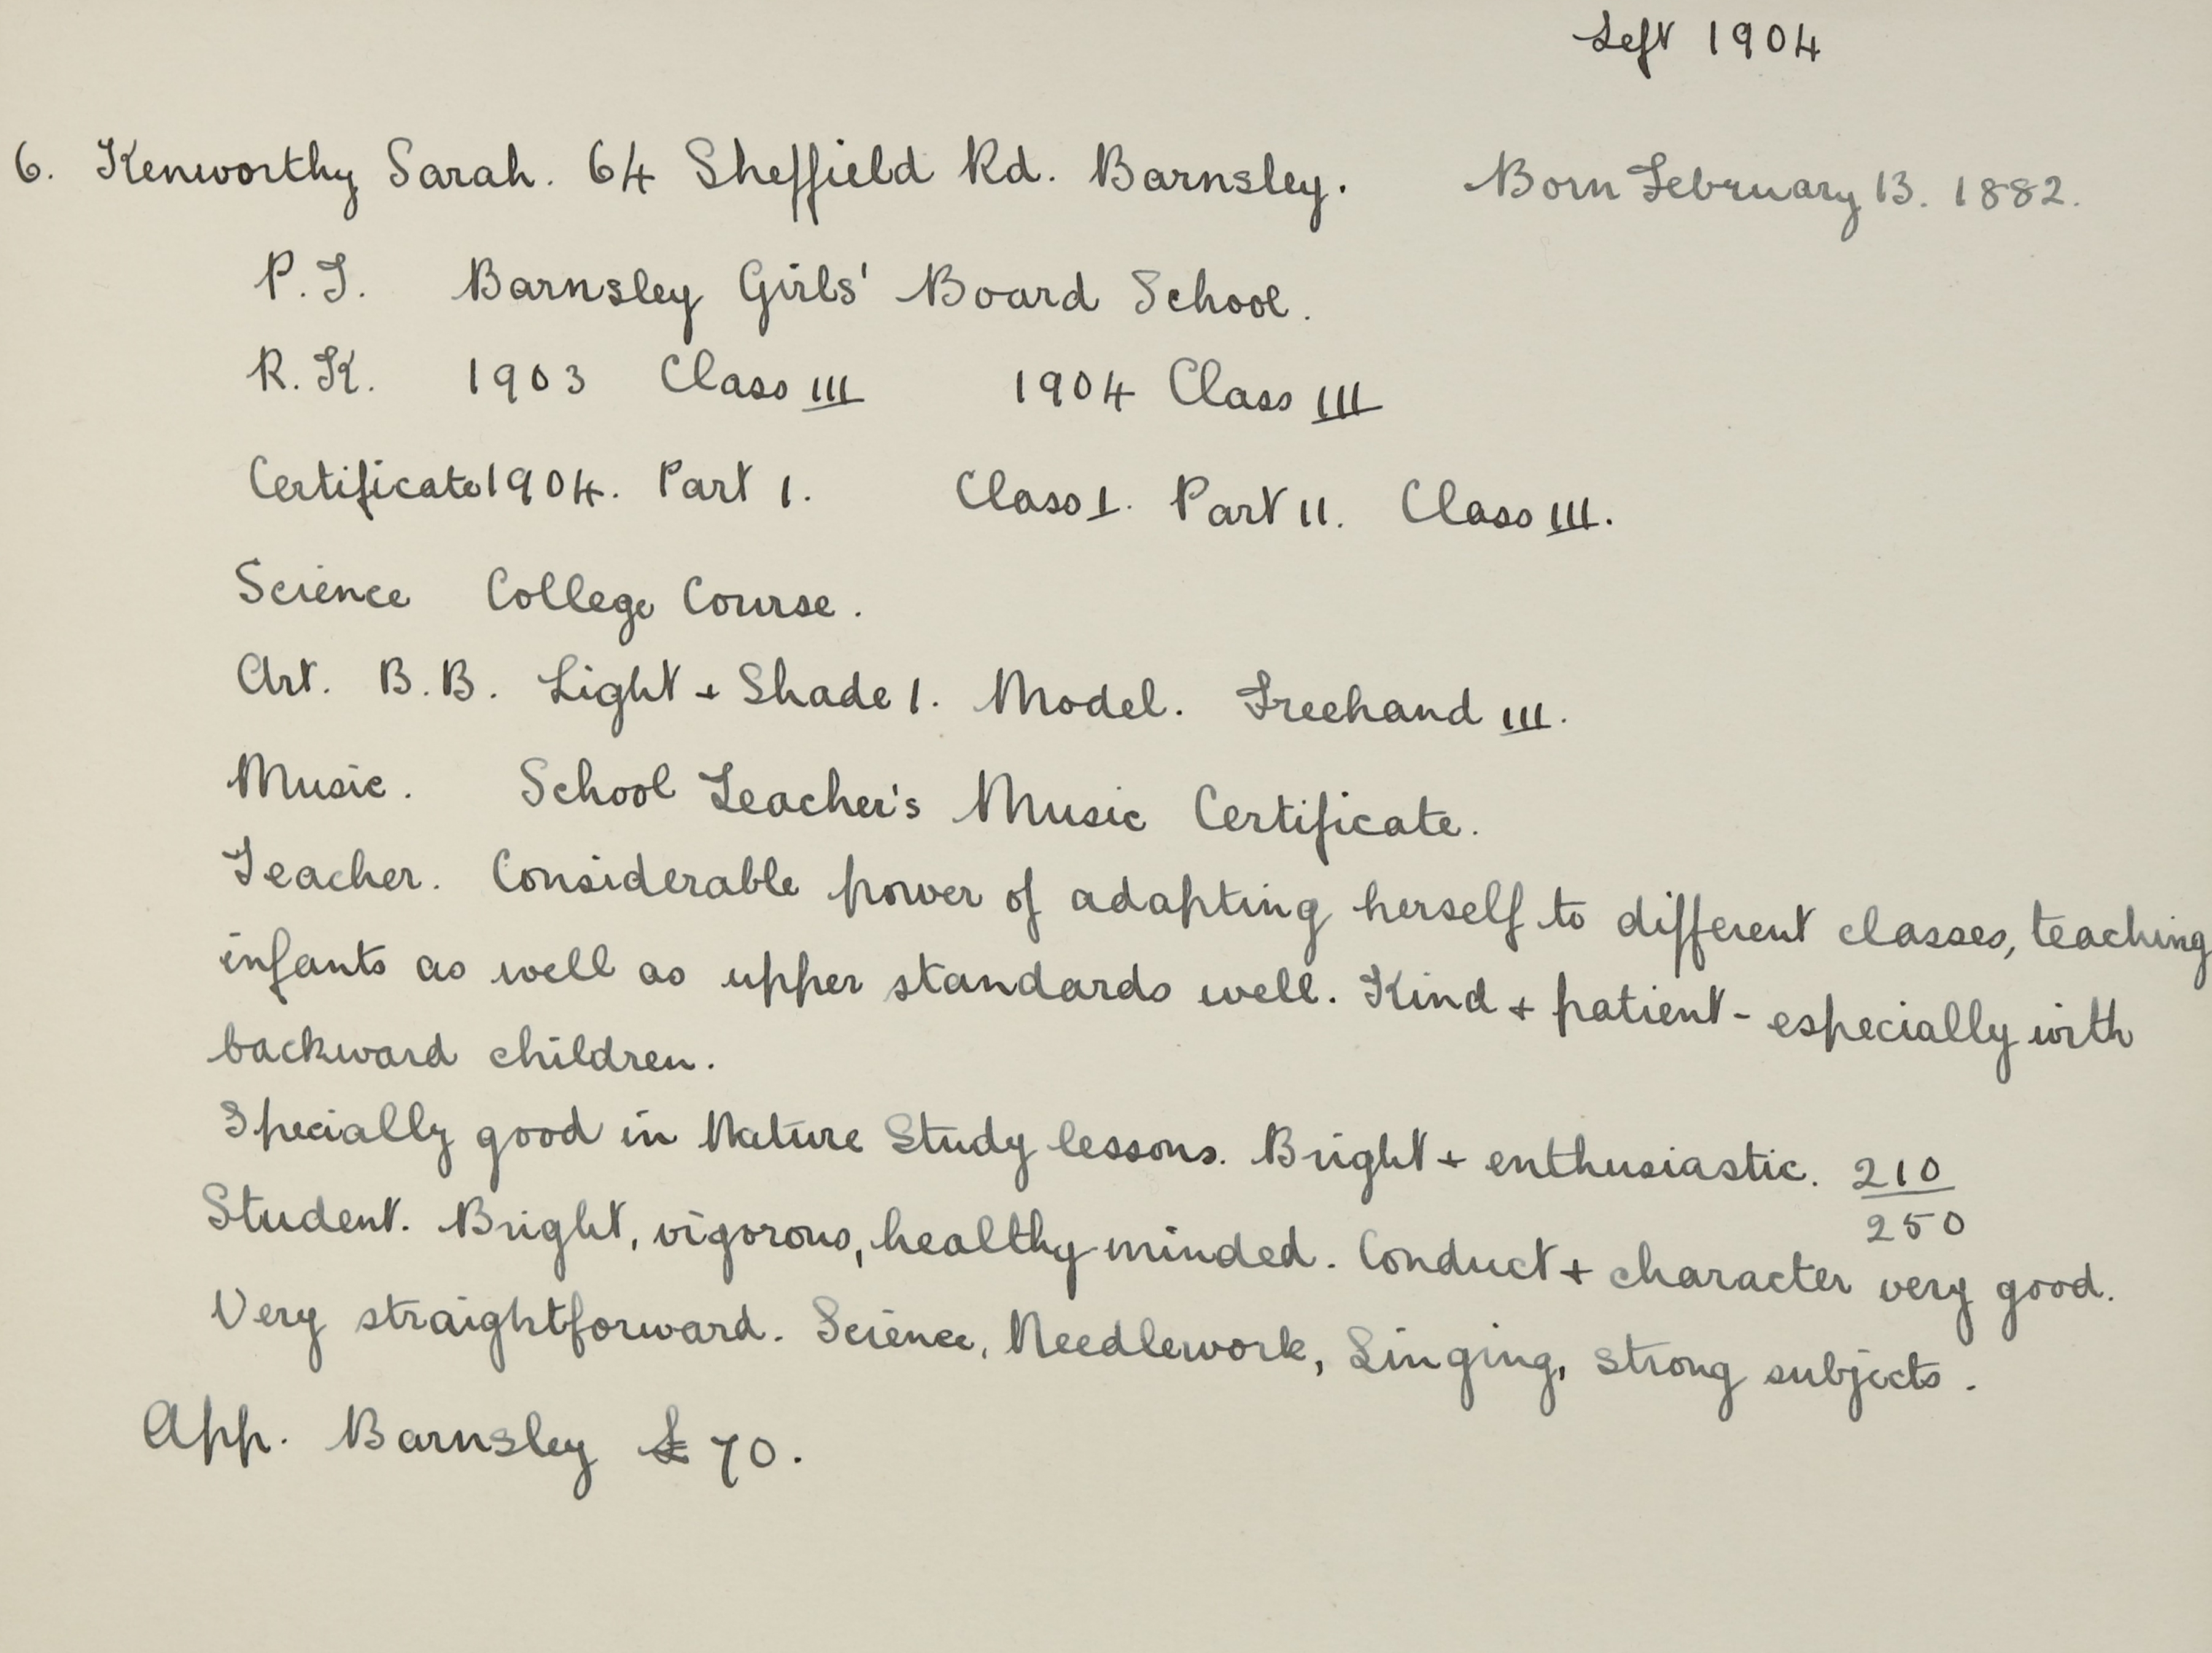 Left 1904
6. Kenworthy Sarah. 64 Sheffield Rd. Barnsley. Born February 13. 1882.
P.T. Barnsley Girls' Board School.
R.K. 1903 Class III 1904 Class III
Certificate 1904. Part I. Class I. Part II. Class III.
Science College Course.
Art. B.B. Light + Shade I. Model. Freehand III.
Music. School Teacher's Music Certificate.
Teacher. Considerable power of adapting herself to different classes, teaching
infants as well as upper standards well. Kind + patient - especially with
backward children.
Specially good in Nature Study lessons. Bright + enthusiastic. 210/250
Student. Bright, vigorous, healthy-minded. Conduct + character very good.
Very straightforward. Science, Needlework, Singing, strong subjects.
App. Barnsley £70.